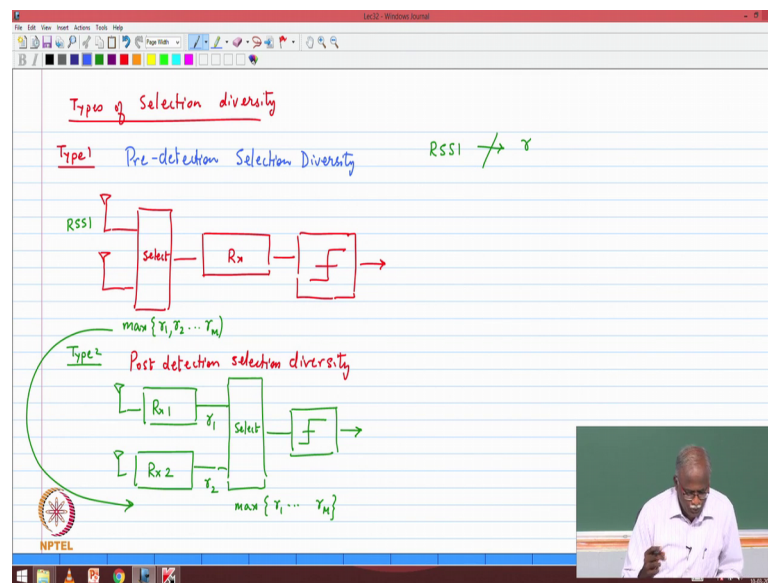 Lec32 - Windows Journal
File Edit View Insert Actions Tools Help
Page Width
B I
Types of Selection diversity
Type1 Pre-detection Selection Diversity
RSSI ↛ γ
RSSI
Select
Rx
max{γ1, γ2 ... γM)
Type2 Post detection selection diversity
Rx 1
γ1
Select
Rx 2
γ2
max {γ1 ... γM}
NPTEL